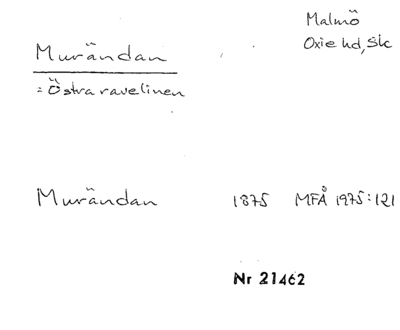 Malmö
Oxie hd, Sk
Murändan
= Östra ravelinen
Murändan 1875 MFÅ 1975:121
Nr 21462